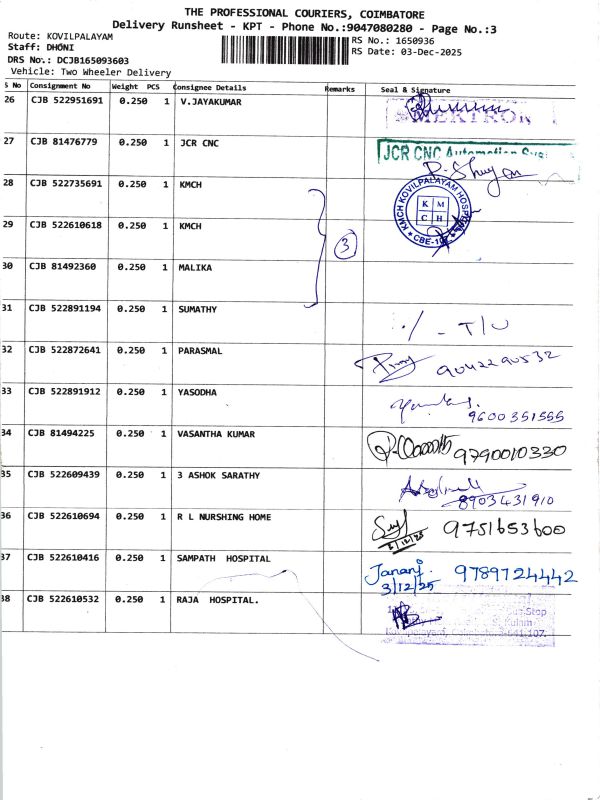 THE PROFESSIONAL COURIERS, COIMBATORE
Delivery Runsheet - KPT - Phone No.:9047080280 - Page No.:3
Route: KOVILPALAYAM
RS No.: 1650936
Staff: DHONI
RS Date: 03-Dec-2025
DRS No.: DCJB165093603
Vehicle: Two Wheeler Delivery
S No Consignment No Weight PCS Consignee Details Remarks Seal & Signature
26 CJB 522951691 0.250 1 V.JAYAKUMAR
27 CJB 81476779 0.250 1 JCR CNC JCR CNC Automation
28 CJB 522735691 0.250 1 KMCH KMCH KOVILPALAYAM HOSPITAL
K M
C H
29 CJB 522610618 0.250 1 KMCH 3
30 CJB 81492360 0.250 1 MALIKA
31 CJB 522891194 0.250 1 SUMATHY T/U
32 CJB 522872641 0.250 1 PARASMAL 9042290532
33 CJB 522891912 0.250 1 YASODHA 9600351555
34 CJB 81494225 0.250 1 VASANTHA KUMAR 9790010330
35 CJB 522609439 0.250 1 3 ASHOK SARATHY 8903431910
36 CJB 522610694 0.250 1 R L NURSHING HOME 9751653600
37 CJB 522610416 0.250 1 SAMPATH HOSPITAL Janani 9789724442
3/12/25
38 CJB 522610532 0.250 1 RAJA HOSPITAL.